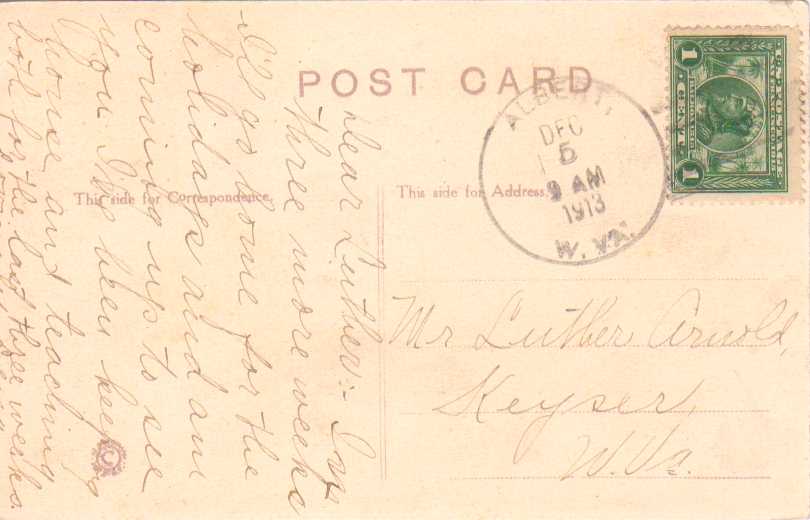 POST CARD
This side for Correspondence.
This side for Address.
ALBERT,
DEC
5
9 AM
1913
W. VA.
U.S. POSTAGE
1 CENT 1
Dear Luther:- In
three more weeks
I'll go home for the
holidays and am
coming up to see
you. I've been keeping
house and teaching
both for the last three weeks.
Mr Luther Arnold,
Keyser,
W. Va.